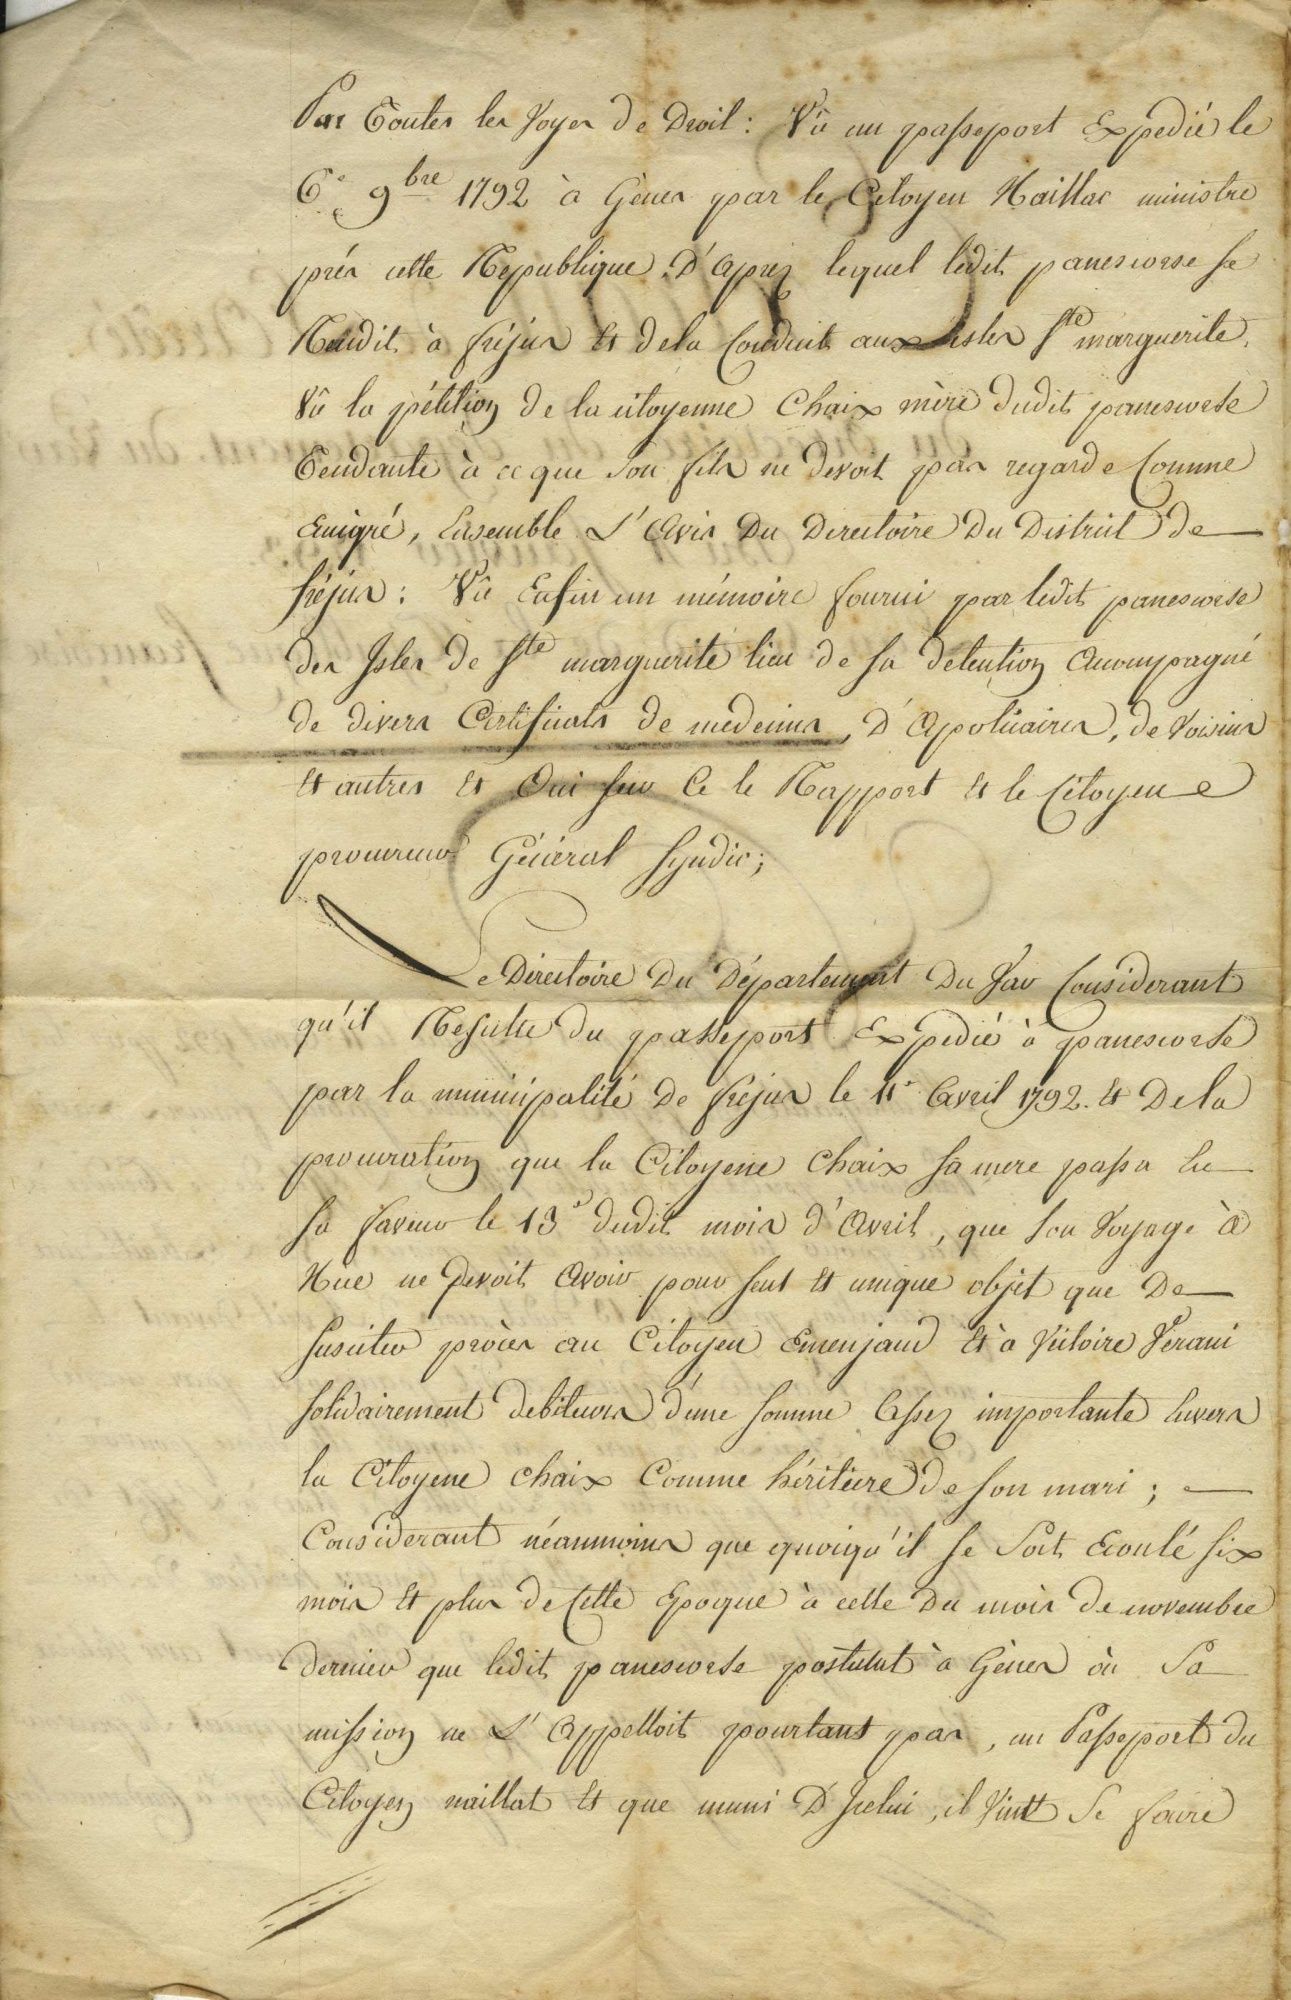 Par toutes les voyes de Droit : Vû un passeport Expedié le
6e 9bre 1792 à Gènes par le Citoyen Naillac ministre
près cette Republique. D'Après lequel ledit panescorse se
Rendit à fréjus Et dela Conduit aux isles Ste marguerite.
Vû la pétition de la citoyenne Chaix mère dudit panescorse
Tendante à ce que son fils ne devoit pas regardé Comme
Emigré, Ensemble L'Avis Du Directoire Du District de
fréjus : Vû Enfin un mémoire fourni par ledit panescorse
des Isles de Ste marguerite lieu de sa detention Accompagné
de divers Certificats de medecins, D'Apoticaires, de voisins
Et autres Et Oui sur Ce le Rapport Et le Citoyen
procureur Général Syndic;
Le Directoire Du Département Du Var Considerant
qu'il Resulte du passeport Expedié à panescorse
par la municipalité De fréjus le 11e Avril 1792. Et De la
procuration que la Citoyene Chaix sa mere passa En
sa faveur le 13e dudit mois d'Avril, que son voyage à
Nice ne devoit Avoir pour seul Et unique objet que De
susciter procès au Citoyen Emenjaud Et à Victoire Verani
solidairement debiteurs d'une somme Assez importante Envers
la Citoyene Chaix Comme héritiere de son mari ;
Considerant néanmoins que quoiqu'il se soit Ecoulé six
mois Et plus de Cette Epoque à celle Du mois de novembre
dernier que ledit panescorse postulat à Gènes où sa
mission ne L'Appelloit pourtant pas, un Passeport du
Citoyen naillat Et que muni D'Icelui, il vintt se faire